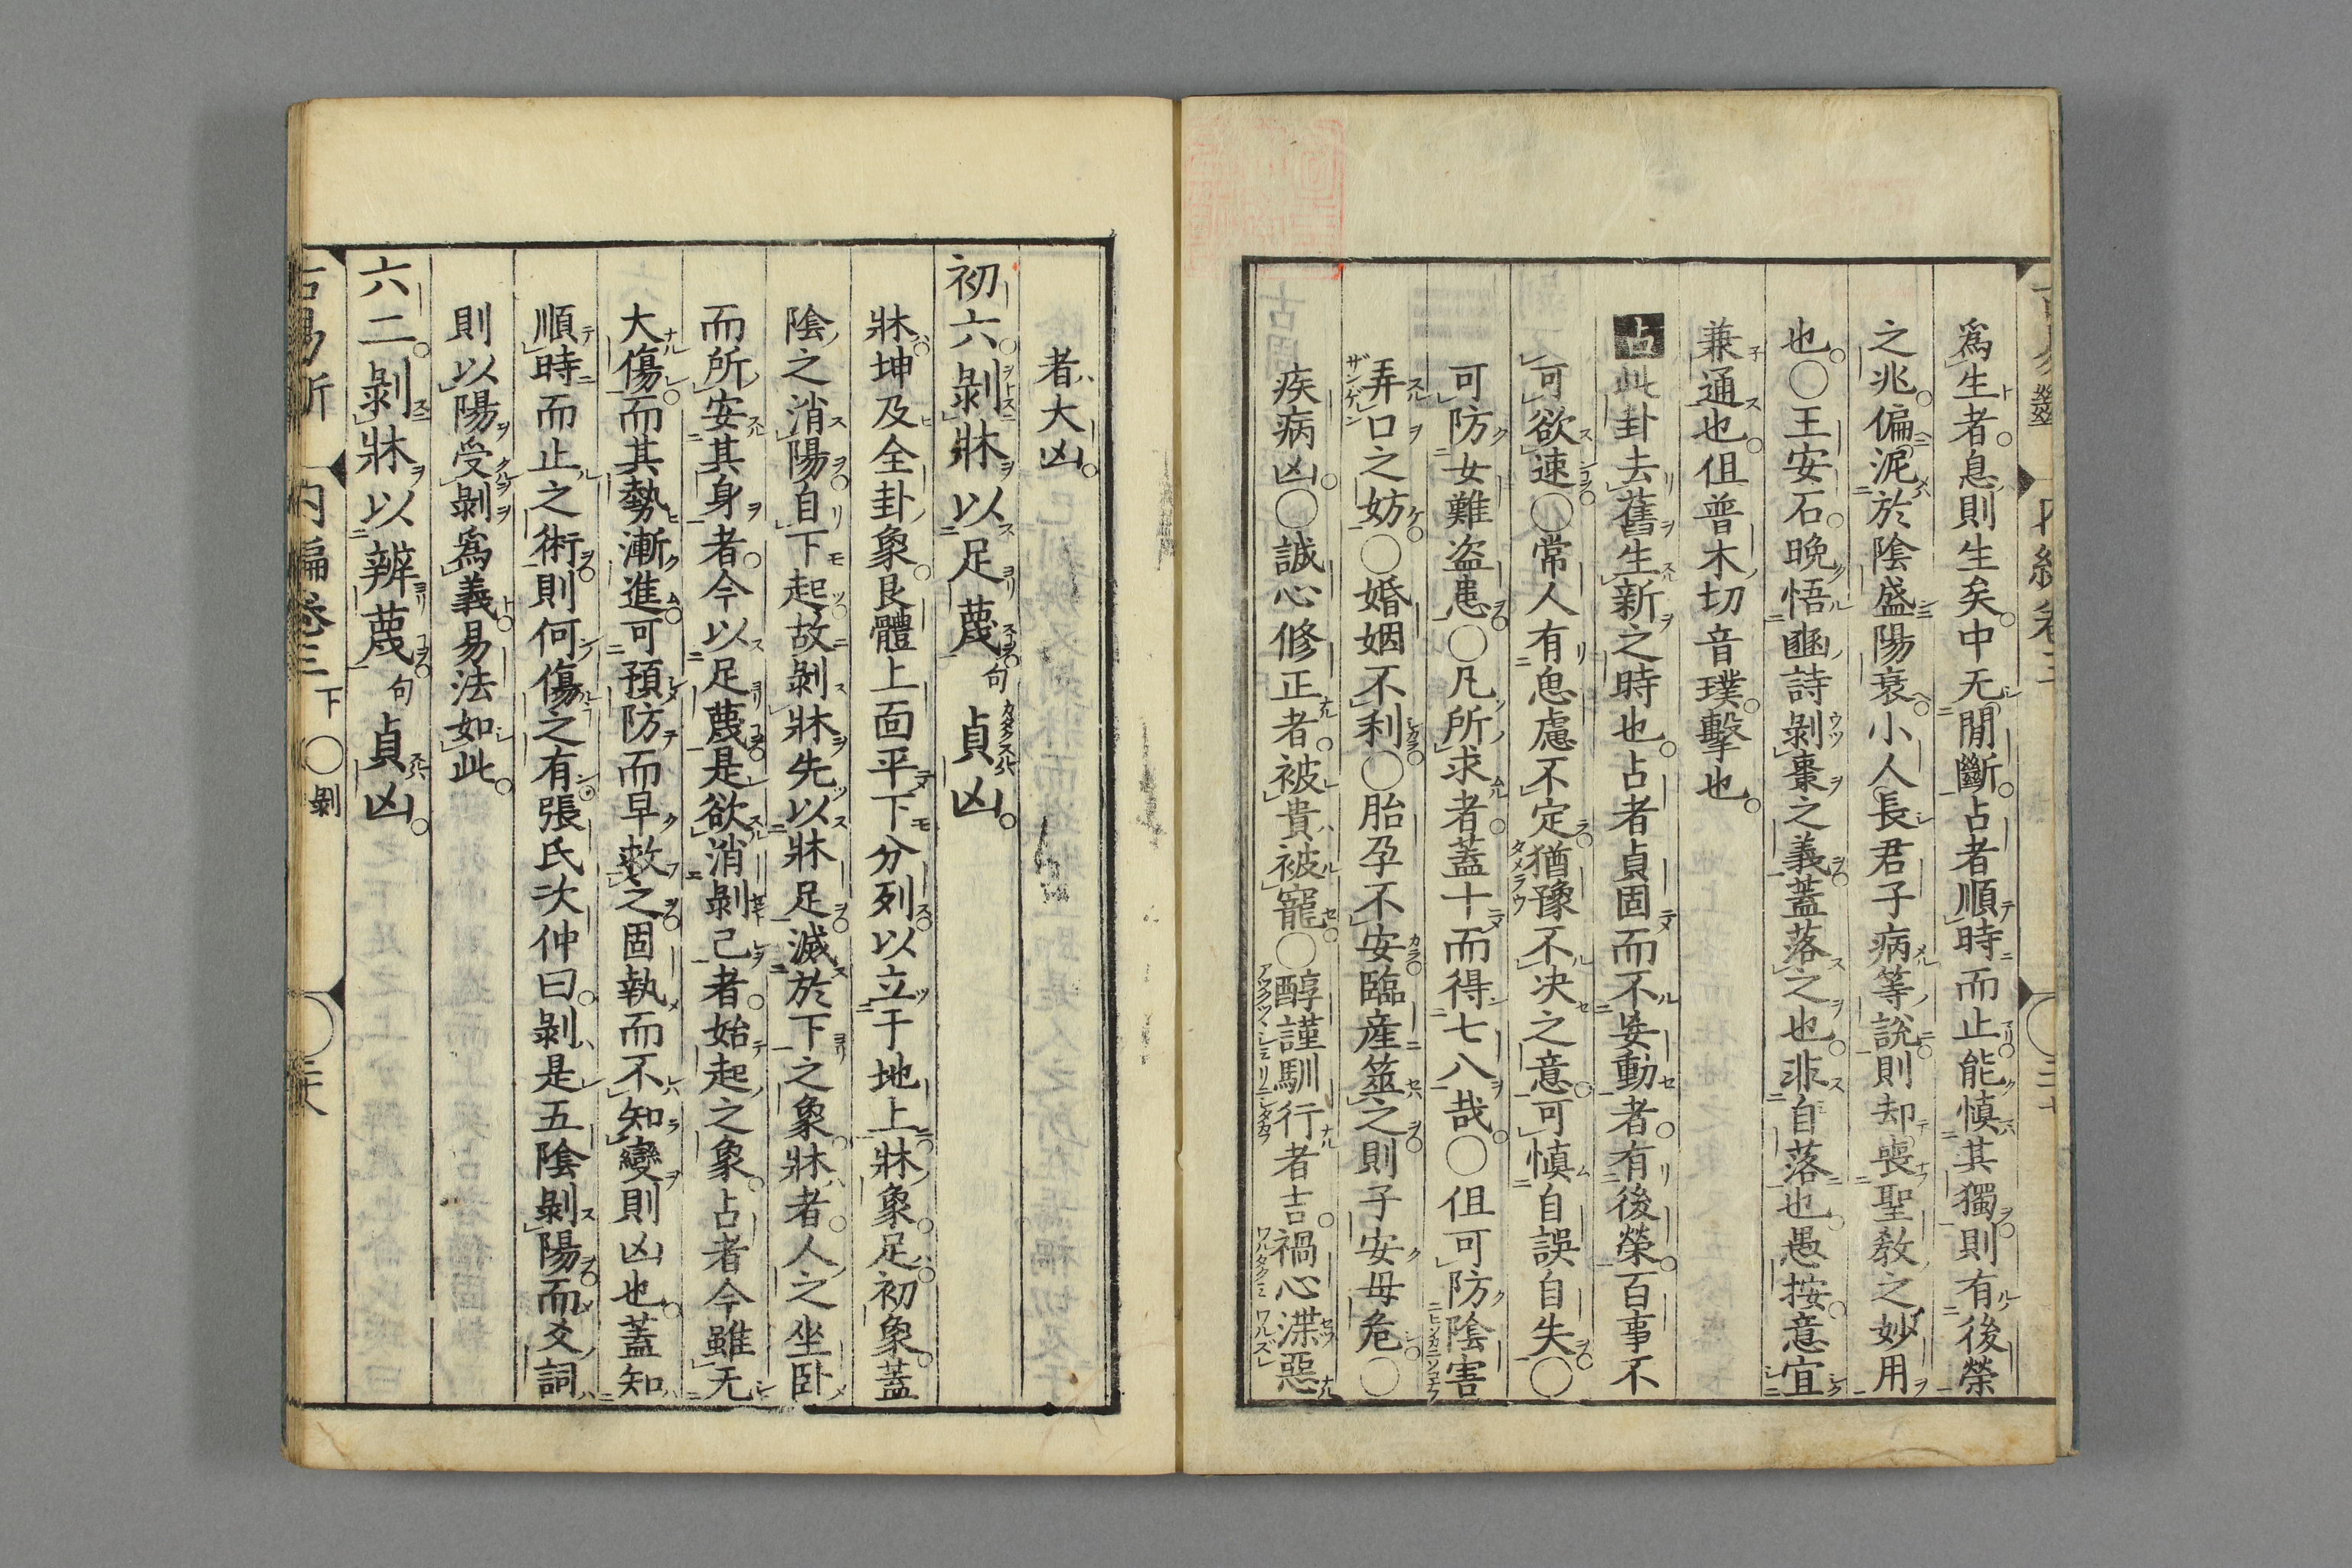 爲生者息則生矣中无閒斷占者順時而止能愼其獨則有後榮
之兆偏泥於陰盛陽衰小人長君子病等說則却喪聖教之妙用
也○王安石晩悟豳詩剥棗之義蓋落之也非自落也愚按意宜
兼通也但普木切音璞擊也
占此卦去舊生新之時也占者貞固而不妄動者有後榮百事不
可欲速○常人有息慮不定猶豫不决之意可愼自誤自失○
可防女難盗患○凡所求者蓋十而得七八哉○但可防陰害
弄口之妨○婚姻不利○胎孕不安臨産筮之則子安母危○
疾病凶○誠心修正者被貴被寵○醇謹馴行者吉禍心渫惡
者大凶
初六剥牀以足蔑句貞凶
牀坤及全卦象艮體上面平下分列以立于地上牀象足初象蓋
陰之消陽自下起故剥牀先以牀足滅於下之象牀者人之坐臥
而所安其身者今以足蔑是欲消剥己者始起之象占者今雖无
大傷而其勢漸進可預防而早救之固執而不知變則凶也蓋知
順時而止之術則何傷之有張氏次仲曰剥是五陰剥陽而爻詞
則以陽受剥爲義易法如此
六二剥牀以辨蔑句貞凶
内編卷三 下 ○剥